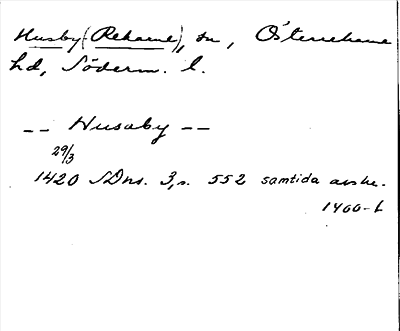 Husby (Rekarne), sn, Österrekarne
hd, Söderm. l.
-- Husaby --
29/3
1420 SDns. 3, s. 552 samtida avskr.
1400-t